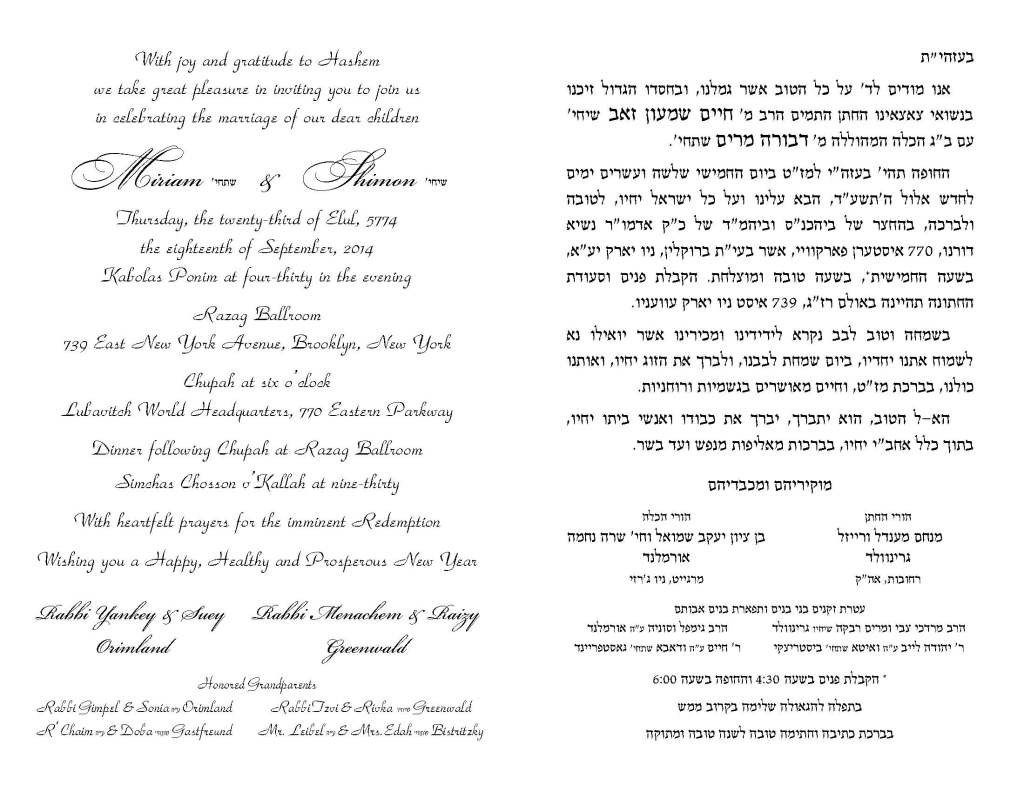 With joy and gratitude to Hashem
we take great pleasure in inviting you to join us
in celebrating the marriage of our dear children
Miriam שתחי' & Shimon שיחי'
Thursday, the twenty-third of Elul, 5774
the eighteenth of September, 2014
Kabolas Ponim at four-thirty in the evening
Razag Ballroom
739 East New York Avenue, Brooklyn, New York
Chupah at six o'clock
Lubavitch World Headquarters, 770 Eastern Parkway
Dinner following Chupah at Razag Ballroom
Simchas Chosson v'Kallah at nine-thirty
With heartfelt prayers for the imminent Redemption
Wishing you a Happy, Healthy and Prosperous New Year
Rabbi Yankey & Suey Rabbi Menachem & Raizy
Orimland Greenwald
Honored Grandparents
Rabbi Gimpel & Sonia ע"ה Orimland Rabbi Tzvi & Rivka שיחיו Greenwald
R' Chaim ע"ה & Doba שתחי' Gastfreund Mr. Leibel ע"ה & Mrs. Edah שתחי' Bistritzky
בעזהי"ת
אנו מודים לד' על כל הטוב אשר גמלנו, ובחסדו הגדול זיכנו
בנשואי צאצאינו החתן התמים הרב מ' חיים שמעון זאב שיחי'
עם ב"ג הכלה המהוללה מ' דבורה מרים שתחי'.
החופה תהי' בעזה"י למז"ט ביום החמישי שלשה ועשרים ימים
לחדש אלול ה'תשע"ד, הבא עלינו ועל כל ישראל יחיו, לטובה
ולברכה, בהחצר של ביהכנ"ס וביהמ"ד של כ"ק אדמו"ר נשיא
דורנו, 770 איסטערן פארקוויי, אשר בעי"ת ברוקלין, ניו יארק יע"א,
בשעה החמישית*, בשעה טובה ומוצלחת. הקבלת פנים וסעודת
החתונה תהיינה באולם רז"ג, 739 איסט ניו יארק עוועניו.
בשמחה וטוב לבב נקרא לידידינו ומכירינו אשר יואילו נא
לשמוח אתנו יחדיו, ביום שמחת לבבנו, ולברך את הזוג יחיו, ואותנו
כולנו, בברכת מז"ט, וחיים מאושרים בגשמיות ורוחניות.
הא-ל הטוב, הוא יתברך, יברך את כבודו ואנשי ביתו יחיו,
בתוך כלל אחב"י יחיו, בברכות מאליפות מנפש ועד בשר.
מוקיריהם ומכבדיהם
הורי החתן הורי הכלה
מנחם מענדל ורייזל בן ציון יעקב שמואל וחי' שרה נחמה
גרינוולד אורמלנד
רחובות, אה"ק מרגייט, ניו ג'רזי
עטרת זקנים בני בנים ותפארת בנים אבותם
הרב מרדכי צבי ומרים רבקה שיחיו גרינוולד הרב גימפל וסוניה ע"ה אורמלנד
ר' יהודה לייב ע"ה ואיטא שתחי' ביסטריצקי ר' חיים ע"ה ודאבא שתחי' גאסטפריינד
* הקבלת פנים בשעה 4:30 והחופה בשעה 6:00
בתפלה להגאולה שלימה בקרוב ממש
בברכת כתיבה וחתימה טובה לשנה טובה ומתוקה